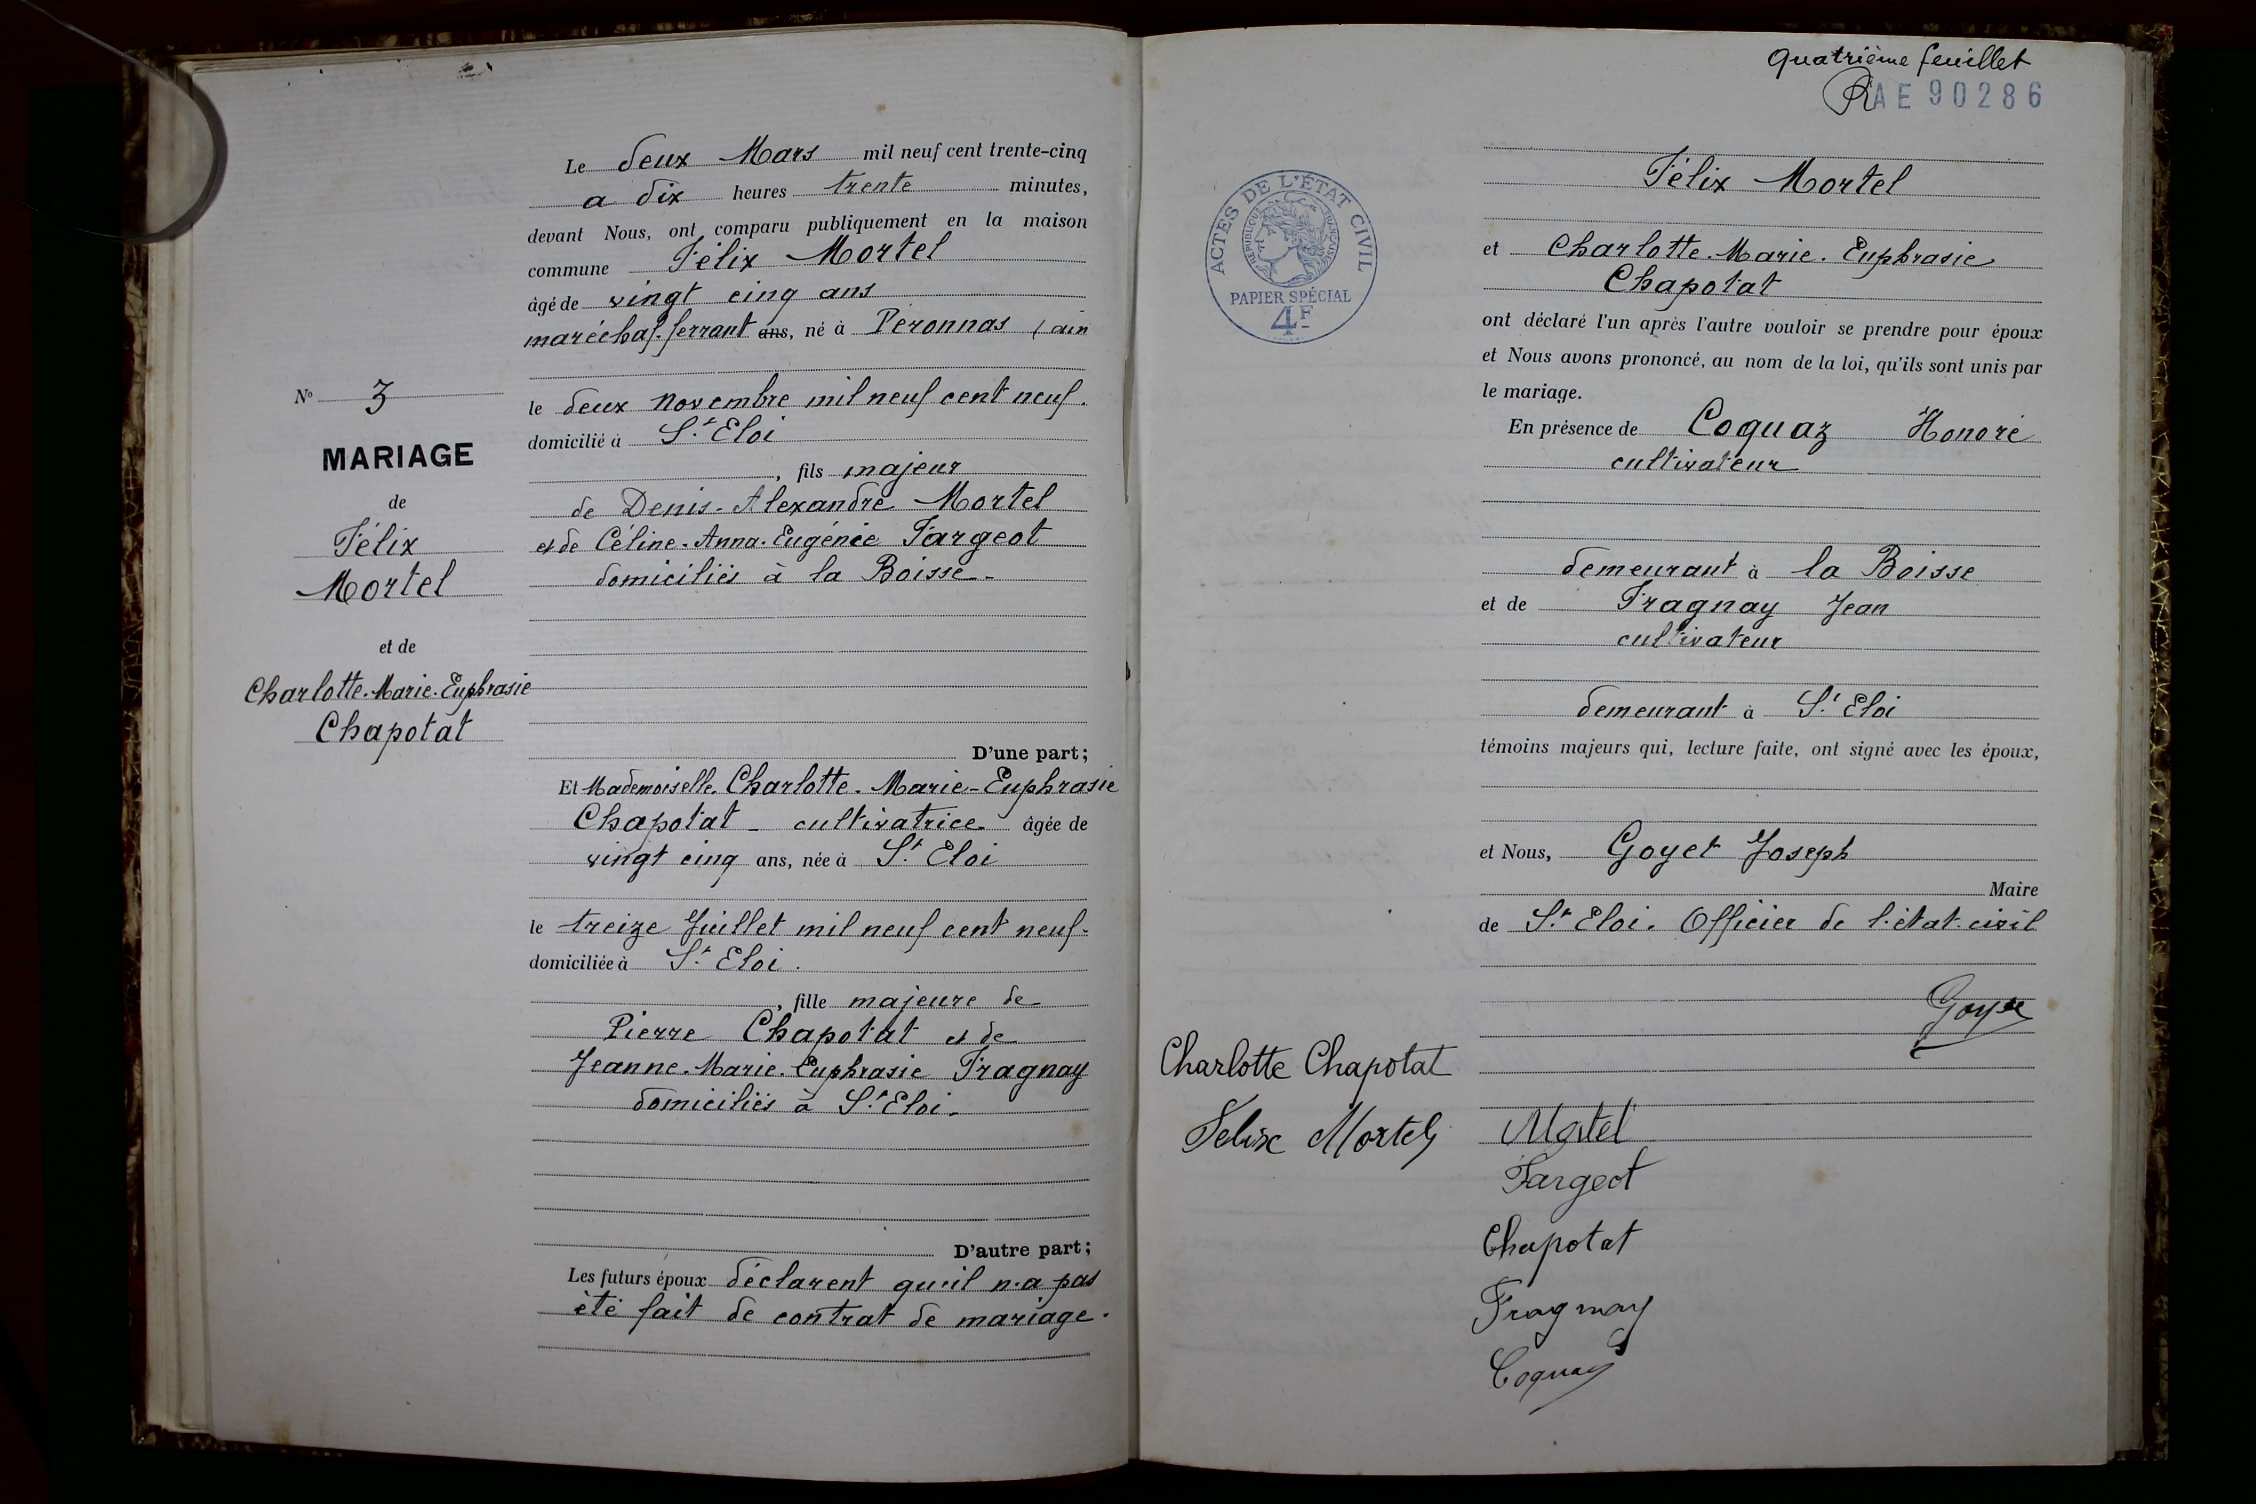 N° 3
MARIAGE
de
Félix
Mortel
et de
Charlotte.Marie.Euphrasie
Chapotat
Le deux Mars mil neuf cent trente-cinq
a dix heures trente minutes,
devant Nous, ont comparu publiquement en la maison
commune Félix Mortel
âgé de vingt cinq ans
maréchal-ferrant ans, né à Péronnas (ain
le deux novembre mil neuf cent neuf.
domicilié à St Eloi
, fils majeur
de Denis-Alexandre Mortel
et de Céline.Anna.Eugénie Fargeot
domiciliés à la Boisse-
D'une part;
Et Mademoiselle Charlotte.Marie-Euphrasie
Chapotat - cultivatrice âgée de
vingt cinq ans, née à St Eloi
le treize Juillet mil neuf cent neuf-
domiciliée à St Eloi.
, fille majeure de
Pierre Chapotat et de
Jeanne.Marie.Euphrasie Fragnay
domiciliés à St Eloi-
D'autre part;
Les futurs époux déclarent qu'il n'a pas
été fait de contrat de mariage.
Quatrième feuillet
AE 90286
ACTES DE L'ÉTAT CIVIL
RÉPUBLIQUE FRANÇAISE
PAPIER SPÉCIAL
4F
Félix Mortel
et Charlotte.Marie.Euphrasie
Chapotat
ont déclaré l'un après l'autre vouloir se prendre pour époux
et Nous avons prononcé, au nom de la loi, qu'ils sont unis par
le mariage.
En présence de Coquaz Honoré
cultivateur
demeurant à la Boisse
et de Fragnay Jean
cultivateur
demeurant à St Eloi
témoins majeurs qui, lecture faite, ont signé avec les époux,
et Nous, Goyet Joseph
Maire
de St Eloi. Officier de l'état-civil
Goyet
Charlotte Chapotat
Felix Mortel
Mortel
Fargeot
Chapotat
Fragnay
Coquaz